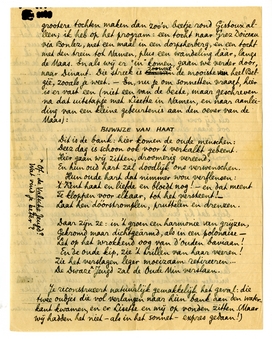 grootere tochten maken dan zoo'n beetje rond Gestoux al-
leen; ik heb op het program: een tocht naar Grez Doiceau
via Bonlez, met een maal en een doezeldorp, en een tocht
met den trein tot Namen, plus een wandeling daar, langs
de Maas. En als wij er 'in' komen, gaan we verder door,
naar Dinant. Die streek is de mooiste van heel Bel-
gië, zooals je weet. — En nu je om sonnetten vraagt, hier
is er vast een (niet een van de beste, maar geschreven
na dat uitstapje met Kiestie in Namen, en naar aanlei-
ding van een kleine gebeurtenis aan den oever van de
Maas):
VAN HAAT
Dit is de bank: hier komen de oude menschen:
Deze dag is schoon ook voor 't verkalkt gebeent.
Hier gaan wij zitten, droomerig vereend,
En hun oud hart zal doodlijk ons verwenschen.
Hun oude hart dat nimmer wou verflensen:
't Kent haat en liefde en bloed nog! — en dat meent
te kloppen voor elkaar, tot het versteent —
Laat hen doodstrompelen, prutteleen en drenzen.
Daar zijn ze: in 't groen en harmonie van grijzen,
Gekromd maar dichtgearmd als in een polonaise —
Let op het wrokkend oog van d'ouden bavaan!
En de oude kip, zie 't trillen van haar veeren!
Zie het verslagen leger moeizaam retireeren —
de Oude Min verstaan.
Je reconstrueert natuurlijk gemakkelijk het geval: die
twee oudjes die vol verlangen naar hun bank aan den water-
kant kwamen, en er Kiestie en mij op vonden zitten (Maar
wij hadden het niet — als in het sonnet — expres gedaan!)